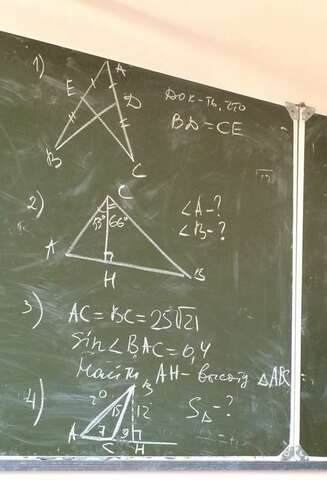 1)
A
E
D
B
C
Док-ть, что
BD = CE
2)
C
55° 66°
A
B
H
∠A - ?
∠B - ?
3) AC = BC = 25√21
sin∠BAC = 0,4
Найти AH - высоту △ABC
4)
B
20 15 12
A 7 C 9 H
S△ - ?